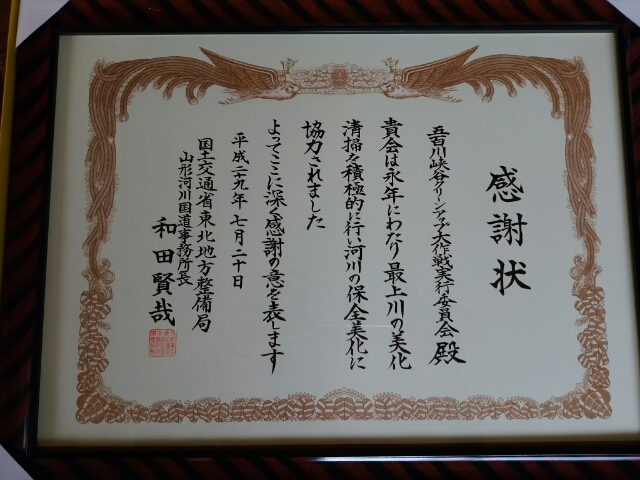 感謝状
五百川峡谷クリーンアップ大作戦実行委員会 殿
貴会は永年にわたり最上川の美化
清掃を積極的に行い河川の保全美化に
協力されました
よってここに深く感謝の意を表します
平成二九年七月二十日
国土交通省東北地方整備局
山形河川国道事務所長
和田賢哉